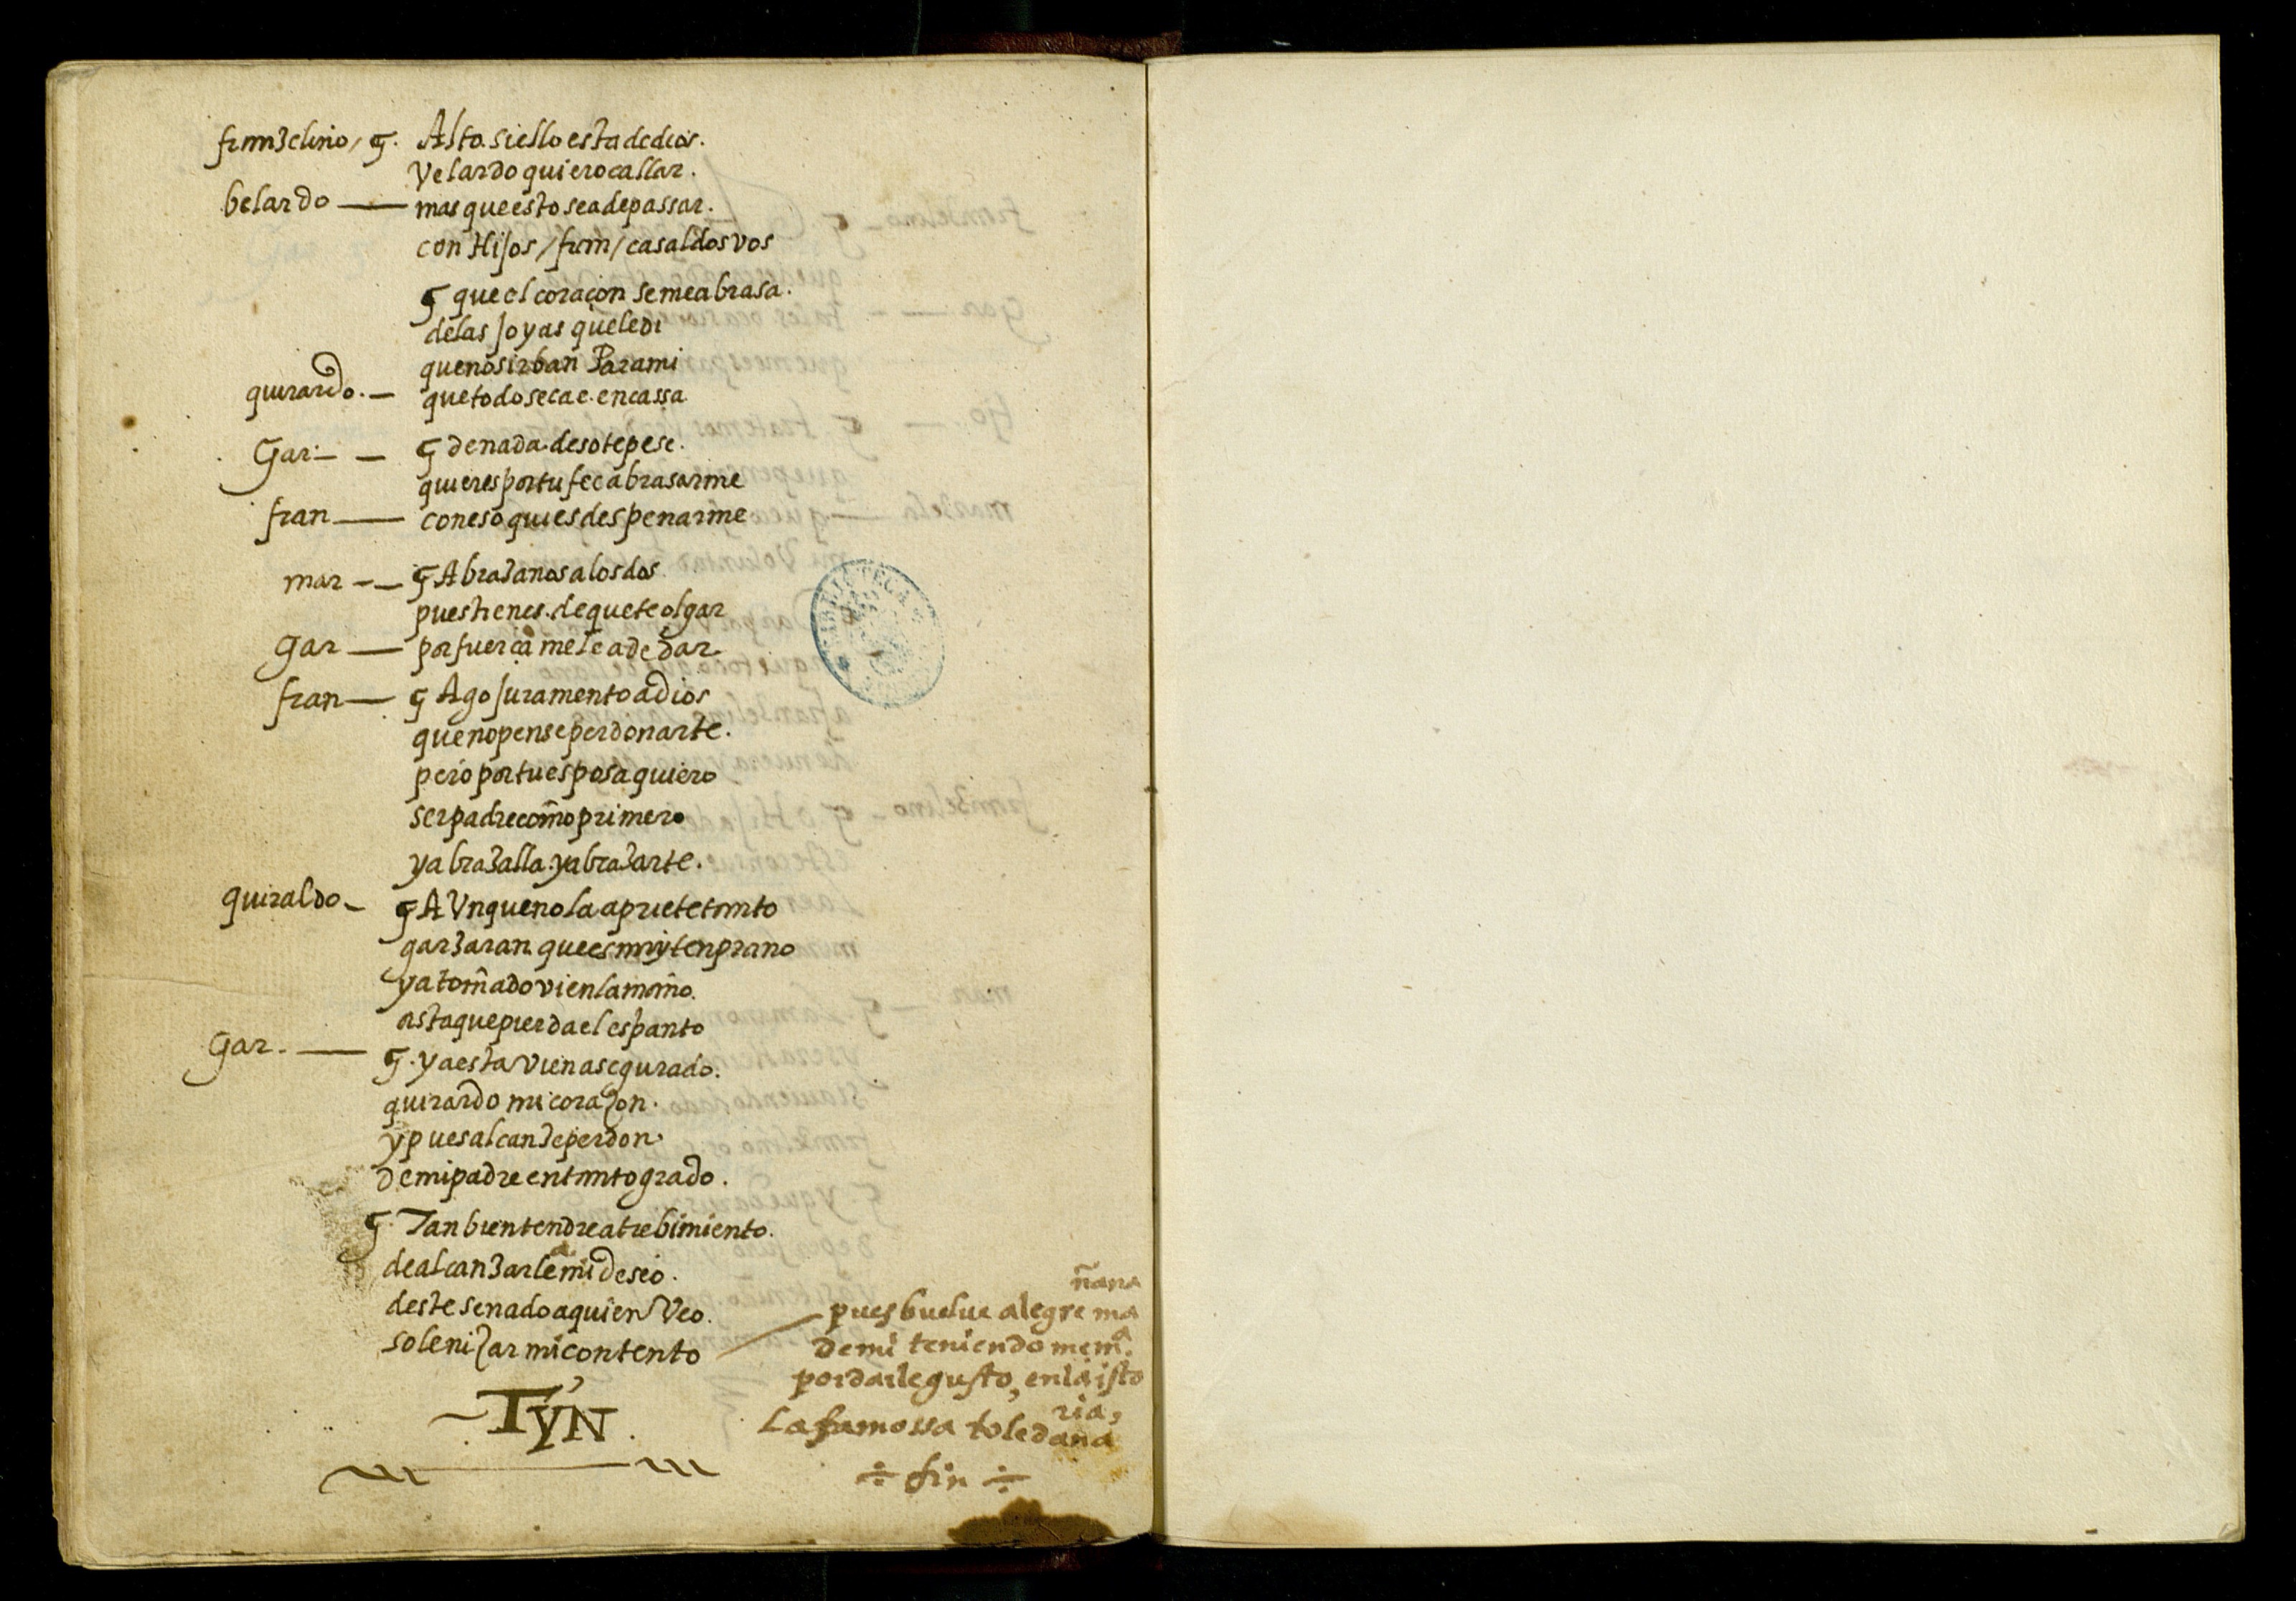 franzelino / g. Alto si ello esta de dios.
Velardo quiero callar.
belardo — mas que esto sea de passar.
con Hijos / fran / casaldos vos
g que el coraçon se me abrasa.
de las joyas que le di
que no sirban Para mi
guirardo. — que todo se cae en cassa
Gar: — g de nada deso te pese.
quieres por tu fee abrasarme
fran — con eso quies despenarme
mar — g Abrazanos a los dos
pues tienes. de que te olgar
gar — por fuerça me le a de dar
fran — g Ago juramento a dios
que no pense perdonarte.
pero por tu esposa quiero
ser padre como primero
y abrazalla. y abrazarte.
guiraldo — g A Vnque no la apriete tanto
garzaran que es muy tenprano
ya tomado vien la mano.
asta que pierda el espanto
Gar. — g. ya esta vien asegurado.
guirardo mi corazon.
y pues alcanze perdon
de mi padre en tanto grado.
g. Tanbien tendre atrebimiento.
de alcanzar le a mi deseo.
deste senado a quien Veo.
solenizar mi contento
Fyn.
pues buelue alegre mañana
de mi teniendo mem.a
por darle gusto, en la istoria,
La famossa toledana
÷ fin ÷